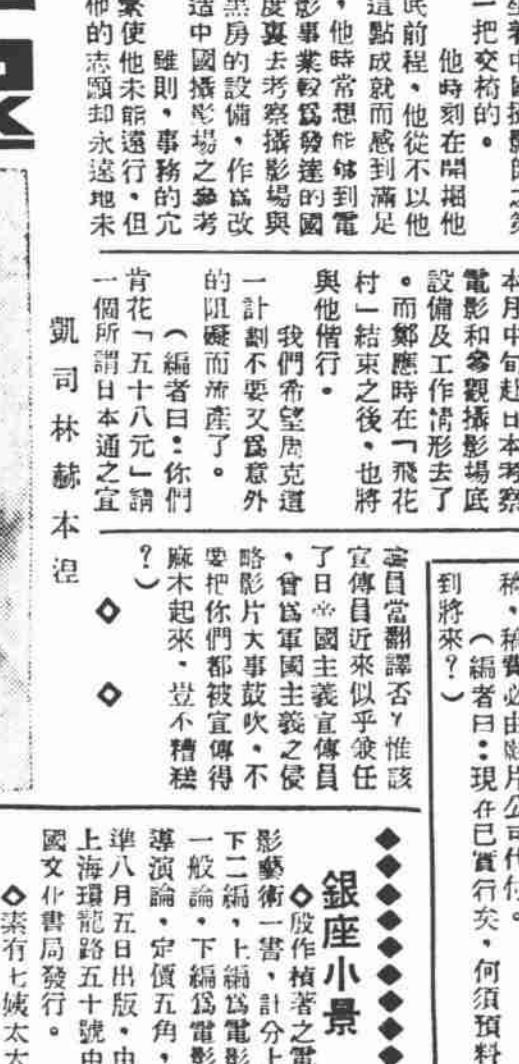 坐著中國攝影師之第
一把交椅的。
他時刻在開掘他
底前程，他從不以他
這點成就而感到滿足
，他時常想能够到電
影事業較爲發達的國
度裏去考察攝影場與
黑房的設備，作爲改
造中國攝影場之參考
雖則，事務的冗
繁使他未能遠行，但
他的志願却永遠地未
本月中旬赴日本考察
電影和參觀攝影場底
設備及工作情形去了
。而鄭應時在「飛花
村」結束之後，也將
與他偕行。
我們希望周克道
一計劃不要又爲意外
的阻礙而流產了。
（編者曰：你們
肯花「五十八元」請
一個所謂日本通之宣
凱司林赫本湼
稿，稿費必由影片公司代付。
（編者曰：現在已實行矣，何須預料
到將來？）
當翻譯否？惟該
宣傳員近來似乎兼任
了日帝國主義宣傳員
，曾爲軍國主義之侵
略影片大事鼓吹，不
要把你們都被宣傳得
麻木起來，豈不糟糕
？）
銀座小景
◇殷作楨著之電
影藝術一書，計分上
下二編，上編爲電影
一般論，下編爲電影
導演論，定價五角，
準八月五日出版，由
上海環龍路五十號中
國文化書局發行。
◇素有七姨太太